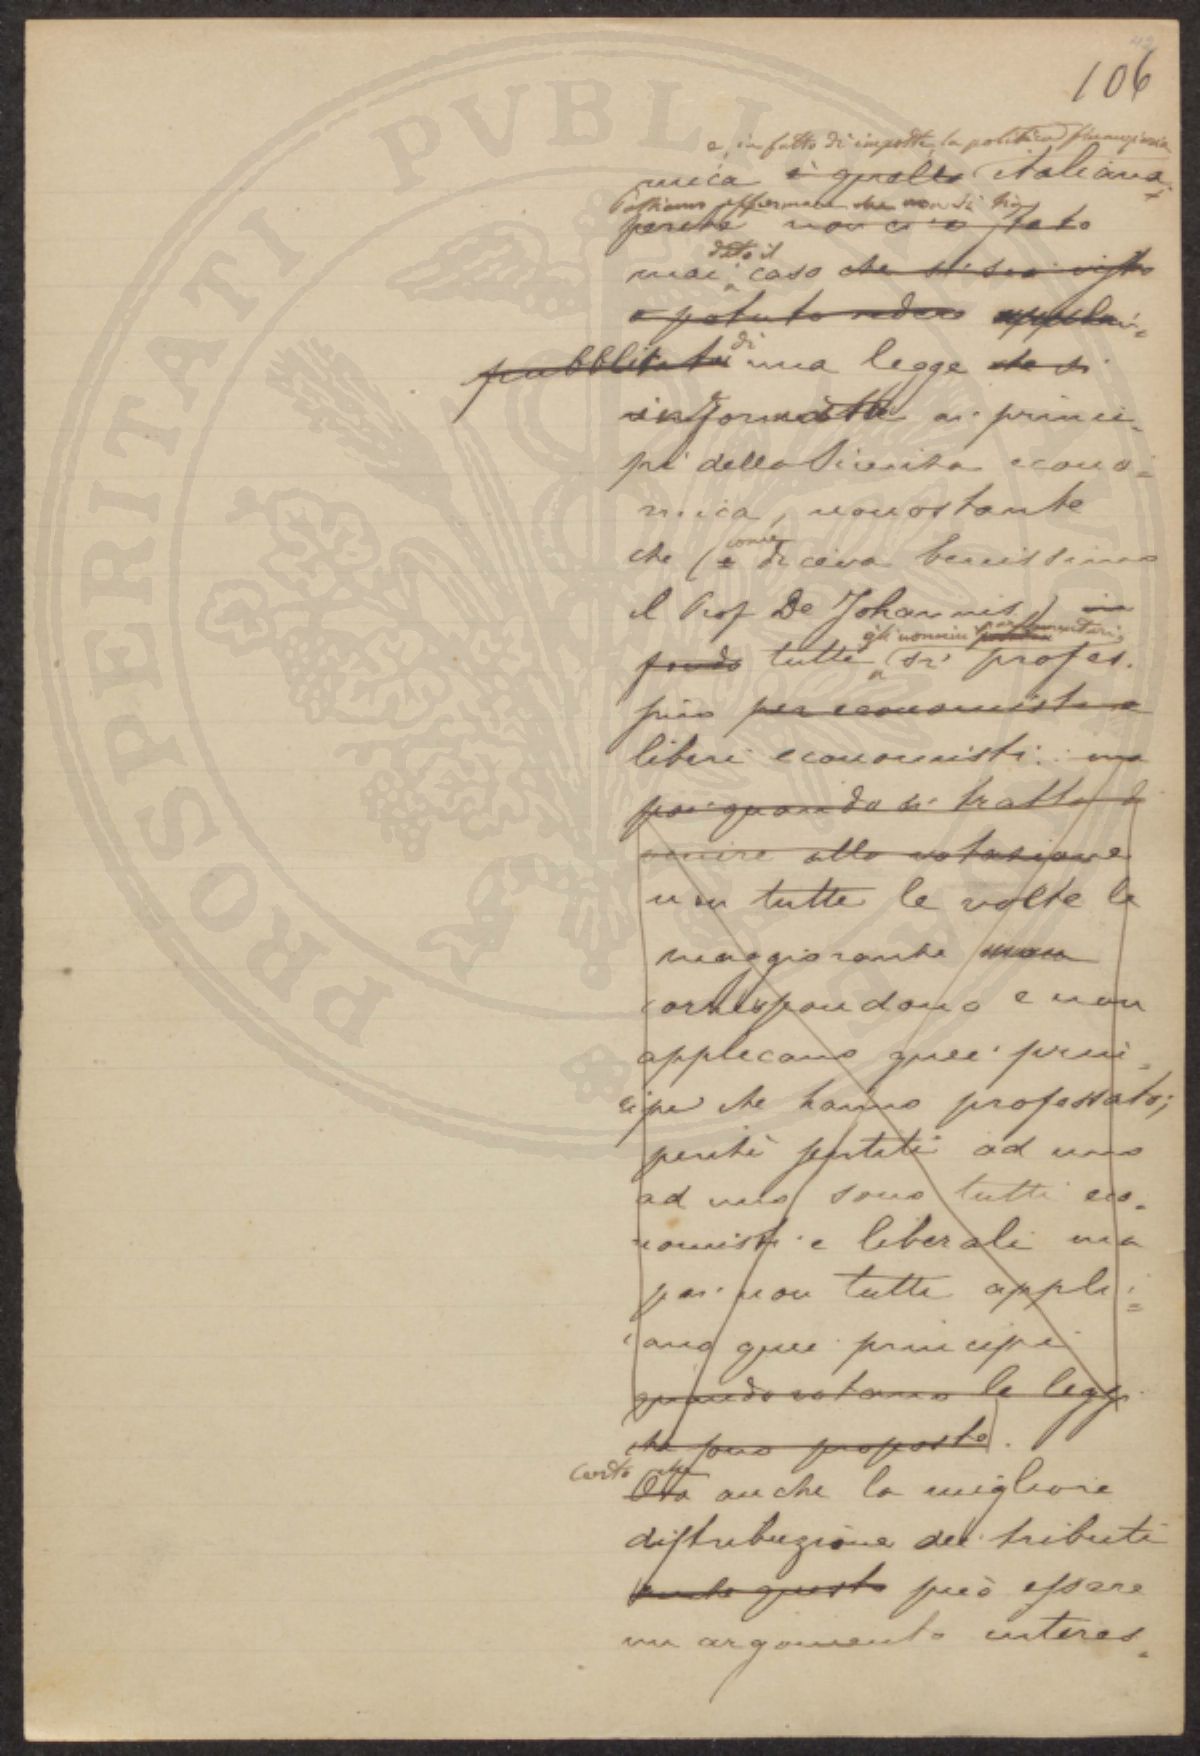 42
106
e, in fatto di imposte, la politica finanziaria
mica è quella italiana
Possiamo affermare che non si sia
perchè non ci è stato
dato il
mai caso che si sia visto
o potuto vedere
pubblicata di una legge che si
informata ai princi-
pi della Scienza econo-
mica, nonostante
che (e come diceva benissimo
il Prof De Johannis) in
gli uomini parlamentari
fondo tutti si profes-
sino per economisti e
liberi economisti: ma
poi quando si tratta di
venire alla votazione
non tutte le volte le
maggioranze non
corrispondono e non
applicano quei prin-
cipi che hanno professato;
perchè sentiti ad uno
ad uno sono tutti eco-
nomisti e liberali ma
poi non tutti appli-
cano quei principi
quando votano le leggi
che sono proposte.
Certo che
Ora anche la migliore
distribuzione dei tributi
anche questo può essere
un argomento interes-
PROSPERITATI PVBLIC